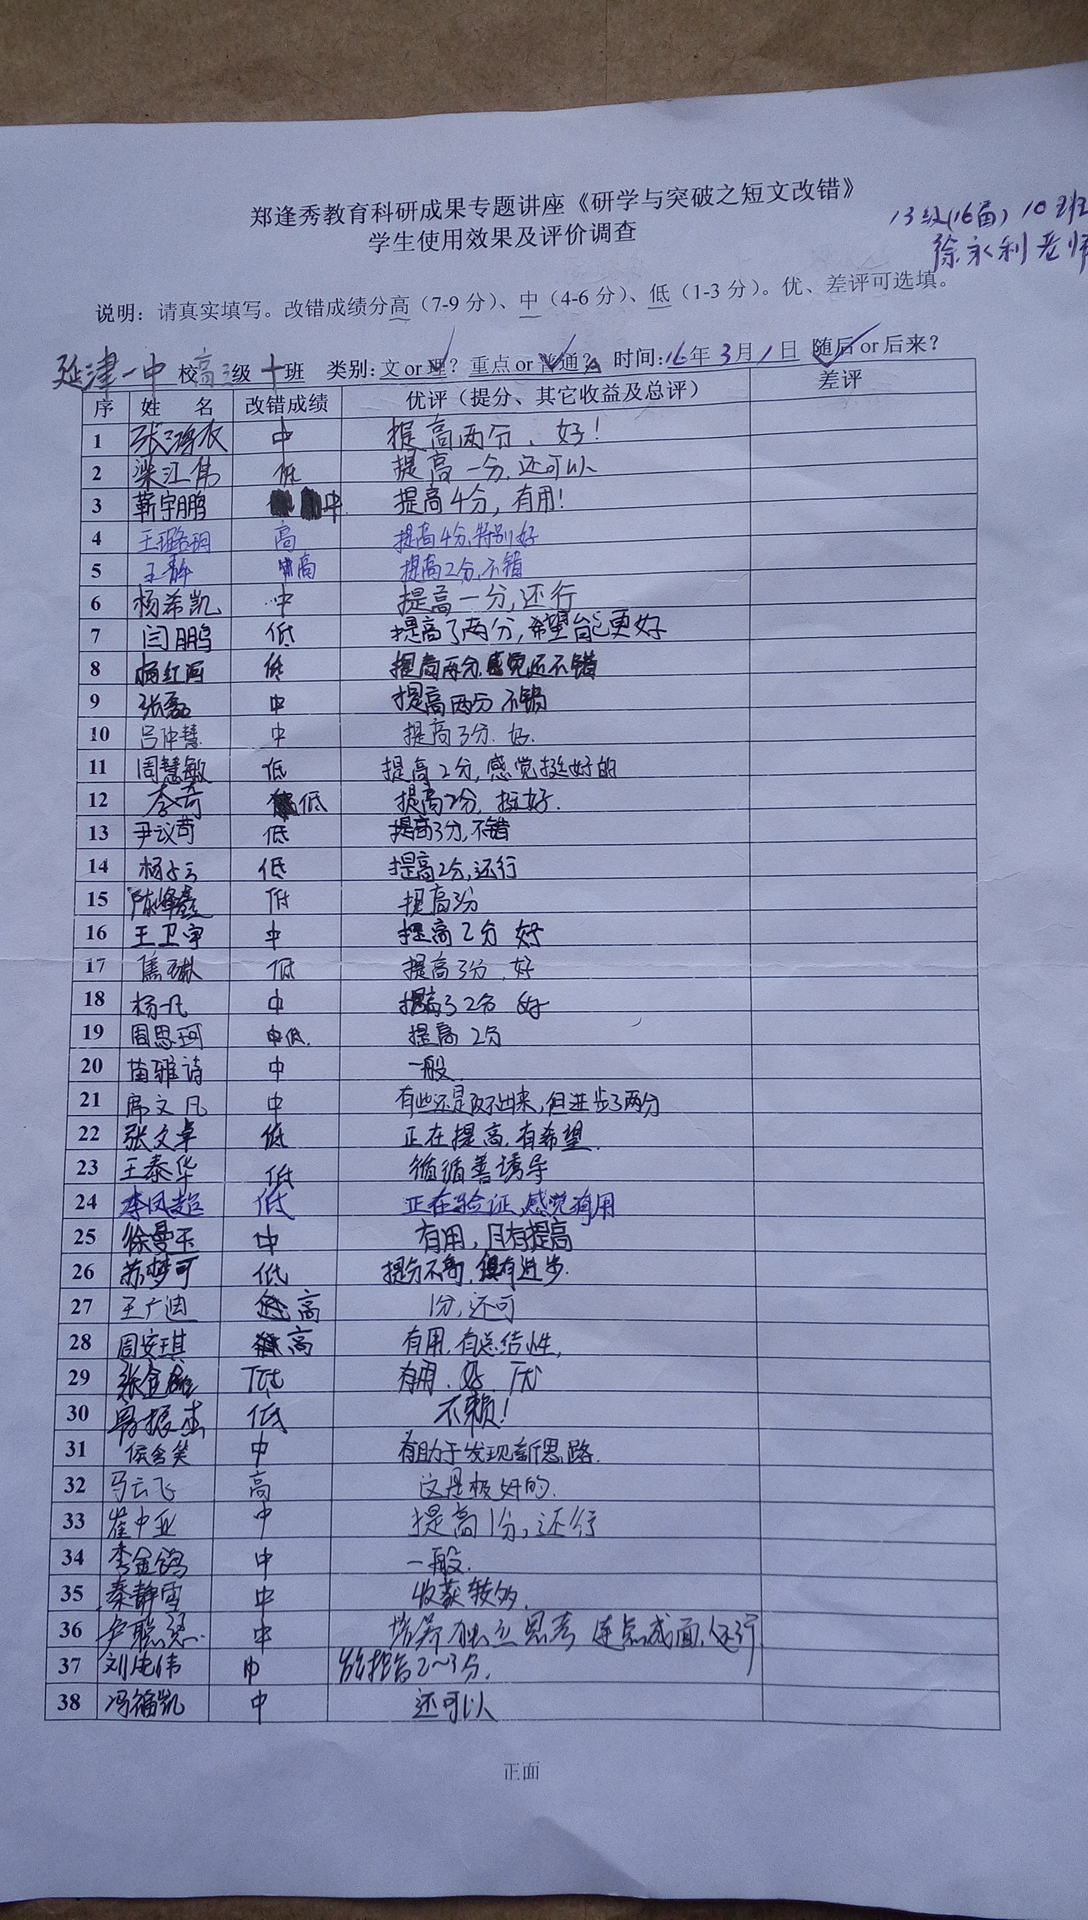 郑逢秀教育科研成果专题讲座《研学与突破之短文改错》
学生使用效果及评价调查
13级(16届) 10班
徐永利老师
说明：请真实填写。改错成绩分高（7-9 分）、中（4-6 分）、低（1-3 分）。优、差评可选填。
延津一中 校高三级 十班 类别: 文 or 理? 重点 or 普通? 时间: 16年 3月 1日 随后 or 后来?
序 姓 名 改错成绩 优评（提分、其它收益及总评） 差评
1 张鸿衣 中 提高两分、好！
2 梁江伟 低 提高一分,还可以
3 靳宇鹏 中 提高4分，有用！
4 王璐玥 高 提高4分,特别好
5 王静 高 提高2分,不错
6 杨希凯 中 提高一分,还行
7 闫鹏 低 提高了两分,希望能更好
8 低 提高两分,感觉还不错
9 张磊 中 提高两分 不错
10 吕仲慧 中 提高3分. 好.
11 周慧敏 低 提高2分,感觉挺好的
12 李奇 低 提高2分, 挺好.
13 尹议苛 低 提高3分,不错
14 低 提高2分,还行
15 陈峰鑫 低 提高3分
16 王卫宇 中 提高2分 好
17 焦琳 低 提高3分,好
18 杨凡 中 提高了2分 好
19 周思珂 低. 提高2分
20 苗雅诗 中 一般
21 席文凡 中 有些还是改不出来,但进步了两分
22 张文卓 低 正在提高,有希望.
23 王泰华 低 循循善诱导
24 李凤超 低 正在验证,感觉有用
25 徐曼玉 中 有用，月有提高
26 苏梦可 低 提分不高,但有进步.
27 王广迪 高 1分,还可
28 周安琪 高 有用,有总结性,
29 低 有用、好、优
30 低 不赖！
31 侯含笑 中 有助于发现新思路.
32 马云飞 高 这是极好的.
33 崔中亚 中 提高1分,还行
34 李金鸽 中 一般.
35 秦静雪 中 收获较多.
36 中 培养独立思考 连点成面,还行
37 中 2~3分.
38 冯福凯 中 还可以
正面